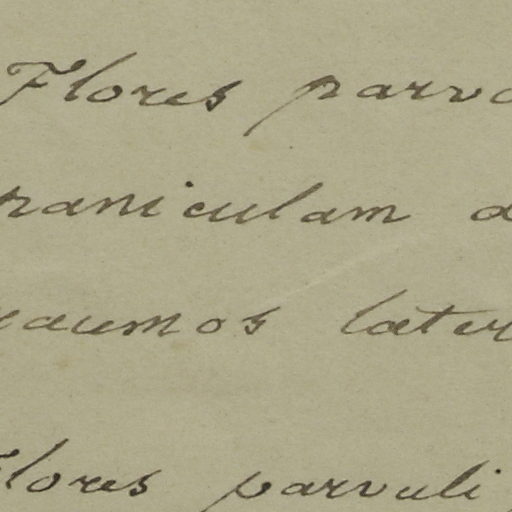 Flores parvu
paniculam d
racemos later
Flores parvuli